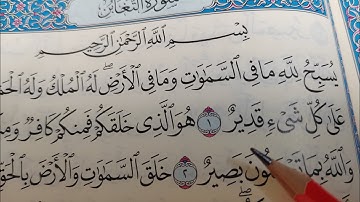 سُورَةُ التَّغَابُنِ
بِسْمِ اللَّهِ الرَّحْمَٰنِ الرَّحِيمِ
يُسَبِّحُ لِلَّهِ مَا فِي السَّمَٰوَٰتِ وَمَا فِي الْأَرْضِ ۖ لَهُ الْمُلْكُ وَلَهُ
عَلَىٰ كُلِّ شَيْءٍ قَدِيرٌ ١ هُوَ الَّذِي خَلَقَكُمْ فَمِنكُمْ كَافِرٌ
وَاللَّهُ بِمَا تَعْمَلُونَ بَصِيرٌ ٢ خَلَقَ السَّمَٰوَٰتِ وَالْأَرْضَ